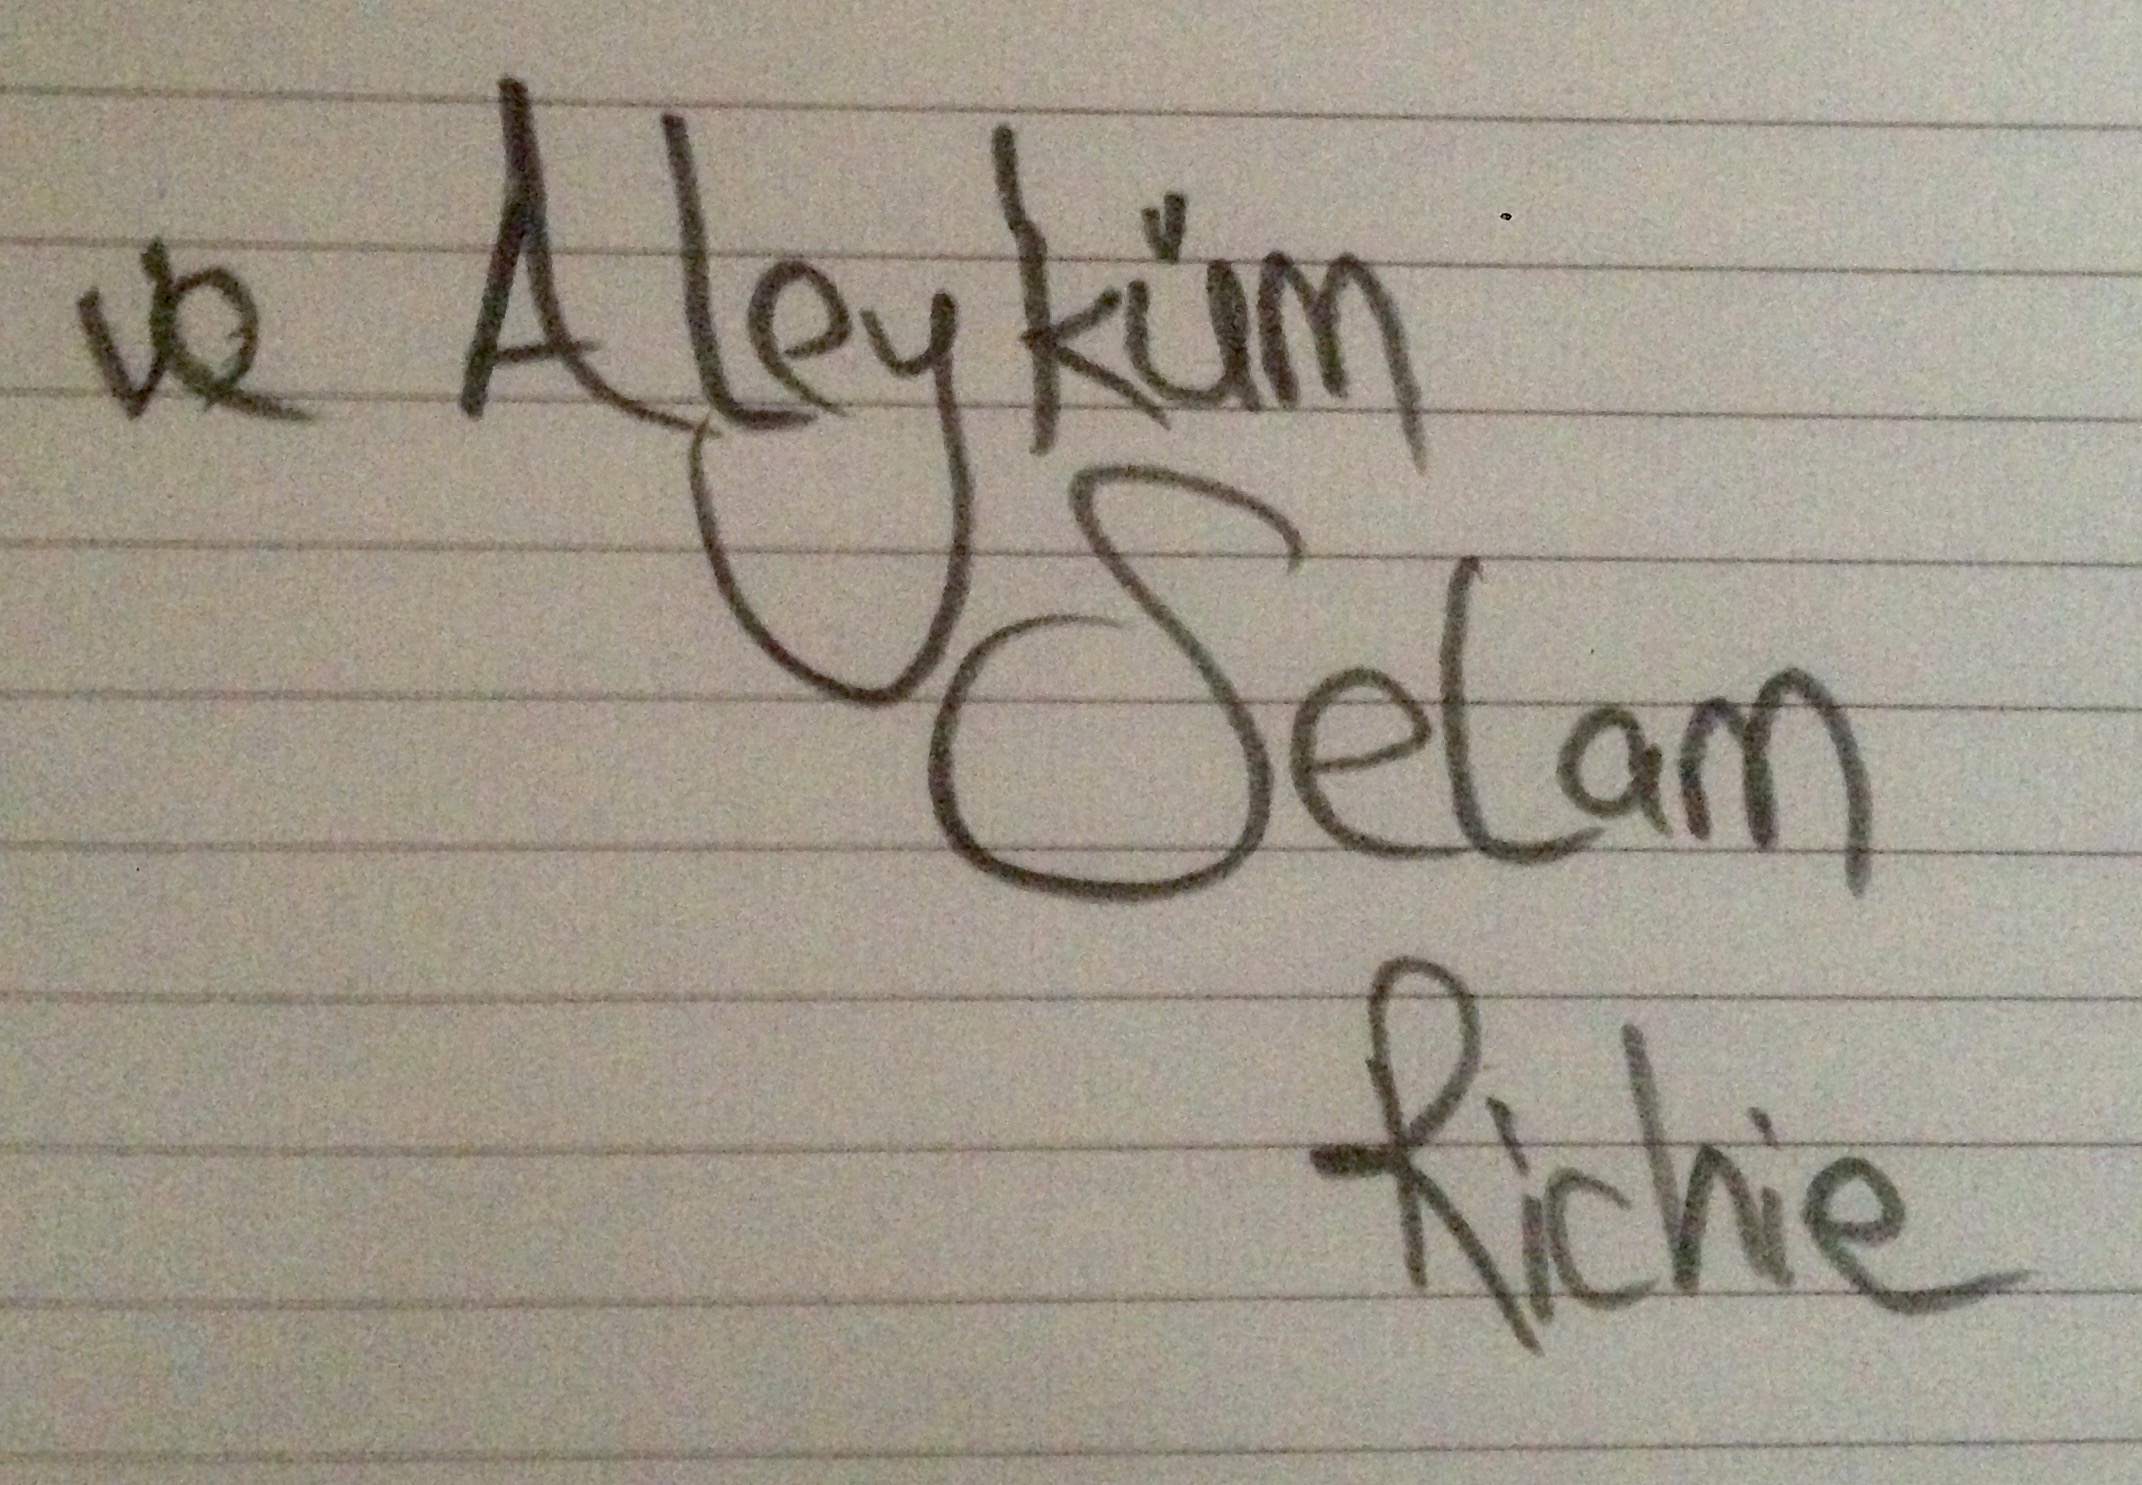 ve Aleyküm
Selam
Richie